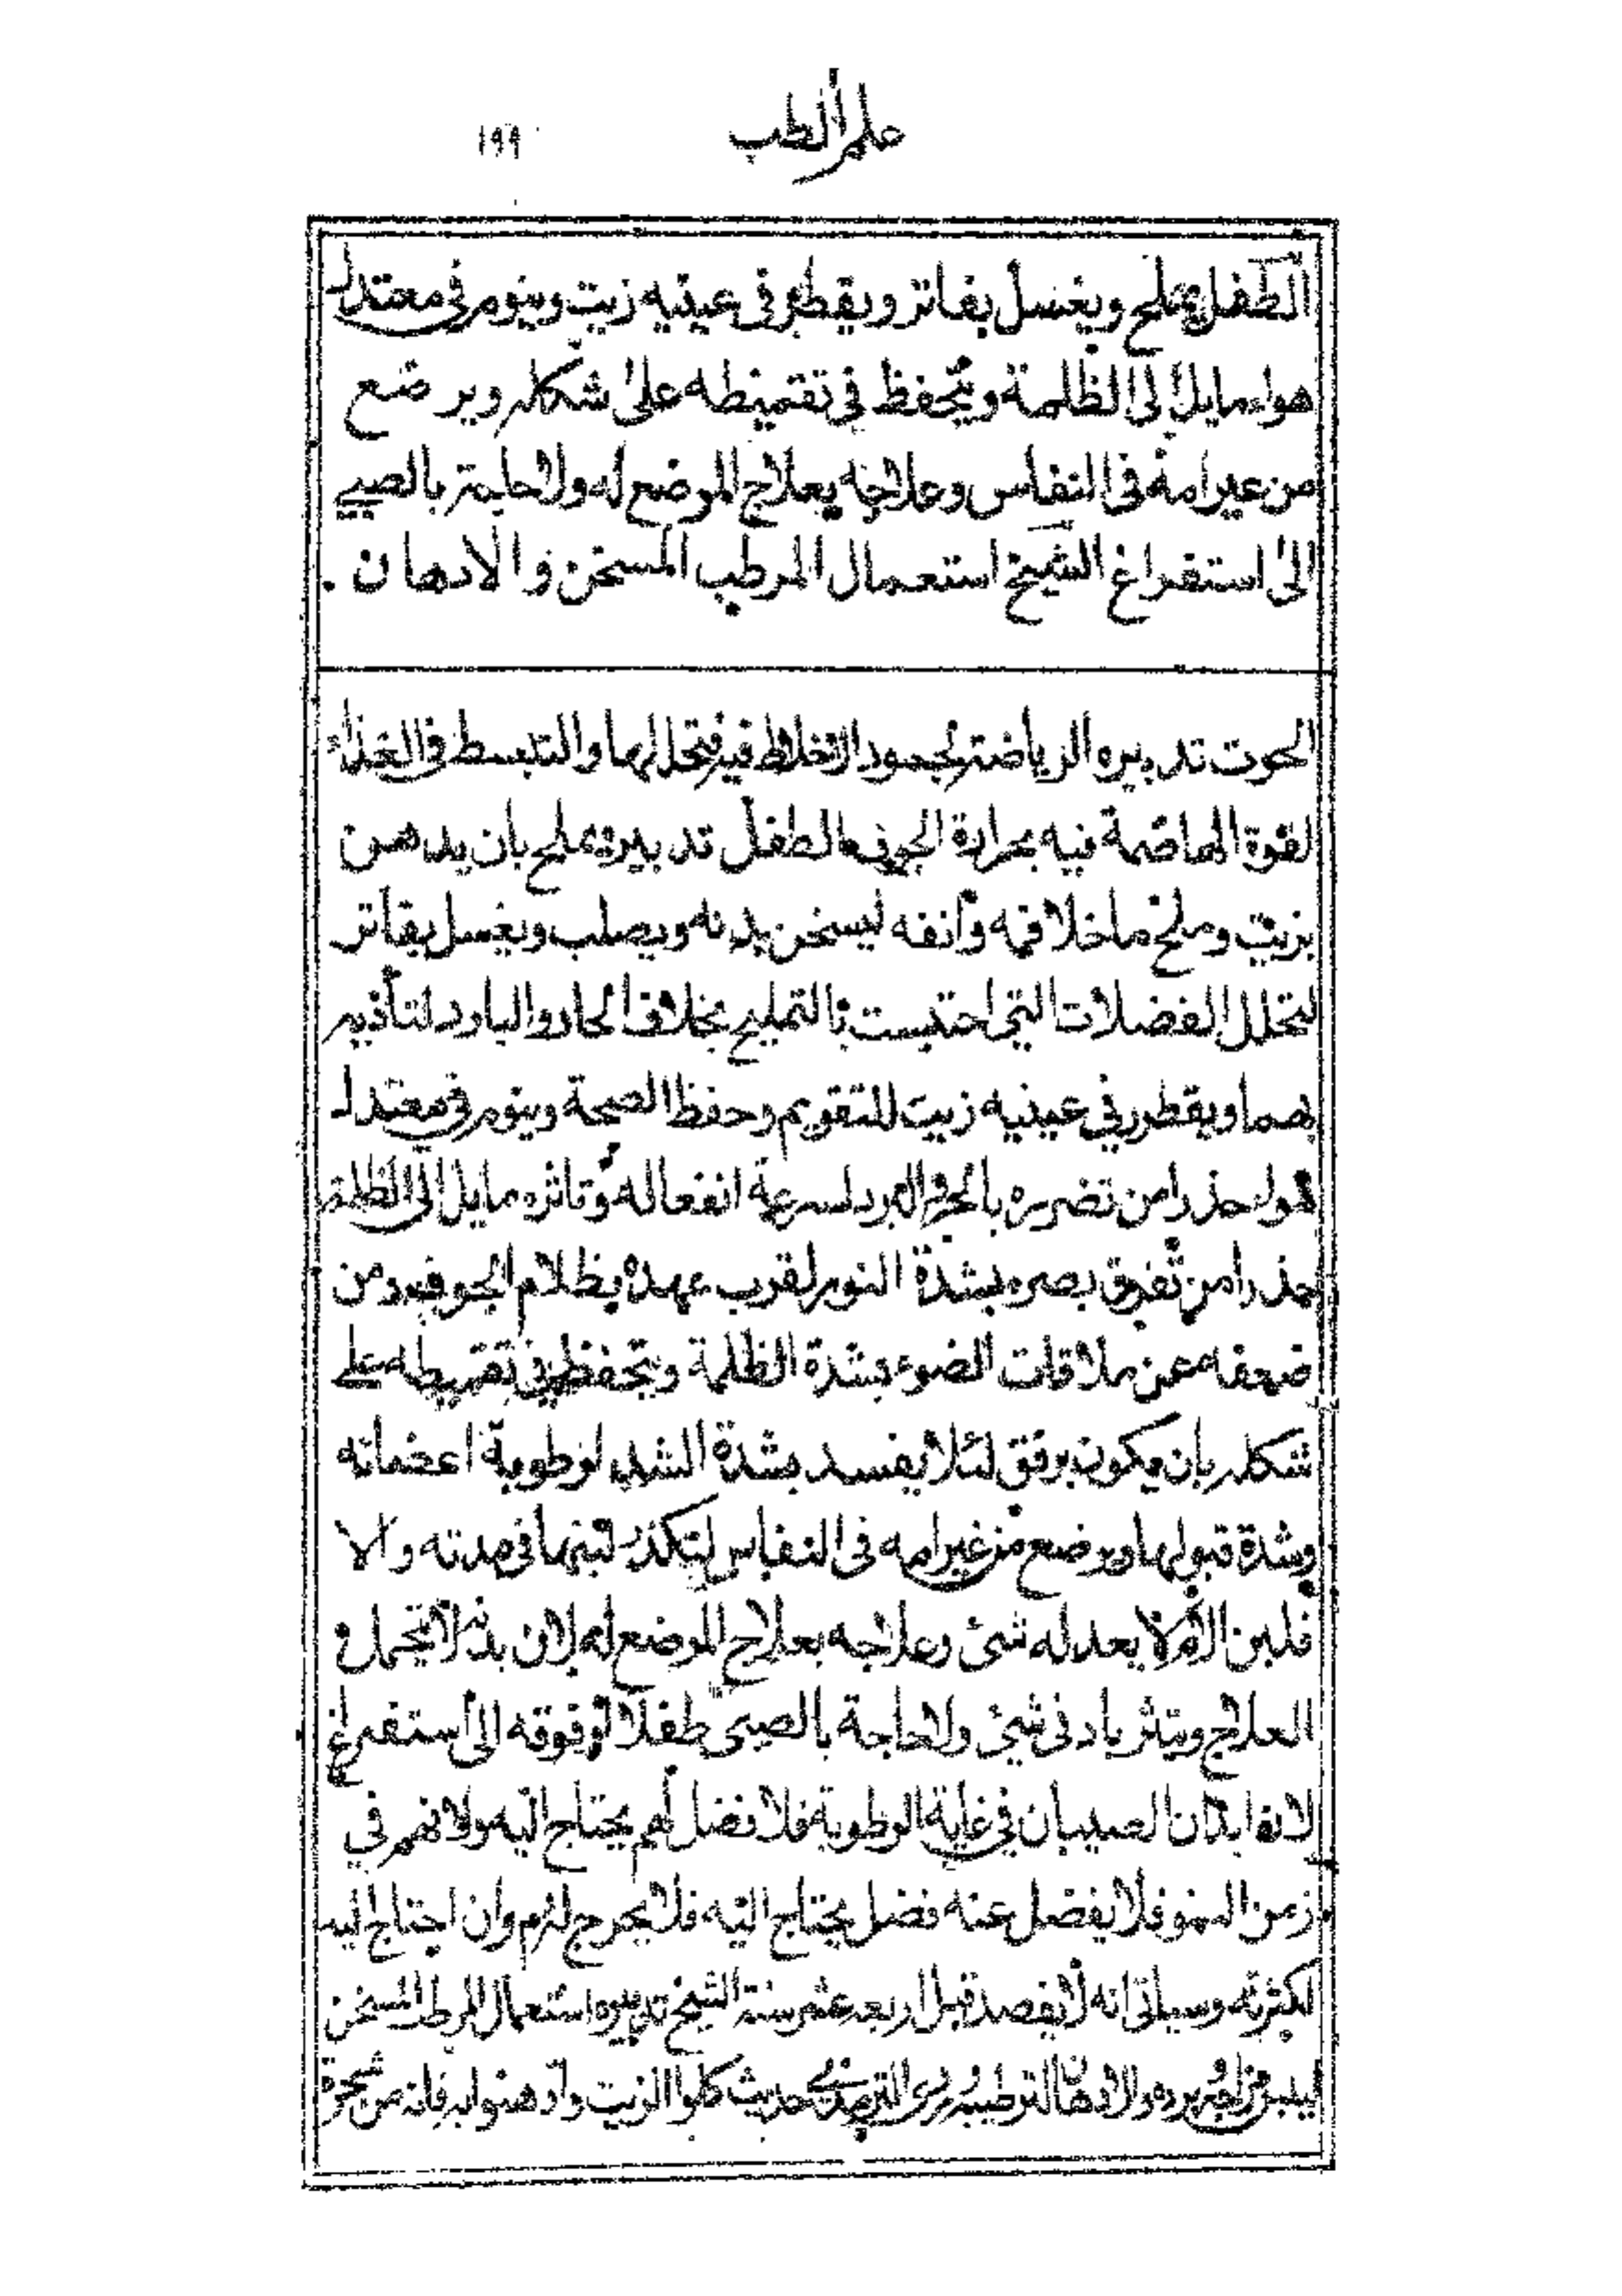 علم الطب ١٩٩
الطفل يملح ويغسل بفاتر ويقطر فى عينيه زيت وينوم فى معتدل
هواء مايل الى الظلمة ويتحفظ فى تقميطه على شكله ويرضع
من غير امه فى النفاس وعلاجه بعلاج الموضع له ولا حاجة بالصبي
الى استفراغ الشيخ استعمال المرطب المسخن والادهان .
تدبيره الرياضة لجمود الاخلاط فيه فتحللها والتبسط فى الغذاء
لقوة الهاضمة فيه بحرارة الجوف الطفل تدبيره يملح بان يدهن
بزيت وملح ماخلا فمه وانفه ليسخن بدنه ويصلب ويغسل بفاتر
لتحلل الفضلات التى احتبست بالتمليح بخلاف الحار والبارد لتأذيه
بهما ويقطر فى عينيه زيت للتقويم وحفظ الصحة وينوم فى معتدل
هواء حذرا من تضرره بالحر والبرد لسرعة انفعاله وتاثره مايل الى الظلمة
حذرا من تفرق بصره بشدة النور لقرب عهده بظلام الجوف ومن
ضعفه عن ملاقات الضوء بشدة الظلمة ويتحفظ فى تقميطه على
شكله بان يكون برفق لئلا يفسد بشدة الشد لرطوبة اعضائه
وشدة قبولها ويرضع من غير امه فى النفاس لتكدر لبنها فى مدته والا
فلبن الام لا يعدله شئ وعلاجه بعلاج الموضع له لان بدنه لا يتحمل
العلاج ويتثر بادنى شئ ولا حاجة بالصبى طفلا او فوقه الى استفراغ
لان ابدان الصبيان فى غاية الرطوبة فلا فضل لهم يحتاج اليه ولانهم فى
زمن النمو فلا يفضل عنه فضل يحتاج اليه فلا يخرج لهم وان احتاج اليه
لكثرته وسياتى انه لا يفصد قبل اربعه عشر سنة الشيخ تدبيره استعمال المرطب المسخن
والادهان روى الترمذى حديث كلوا الزيت وادهنوا به فانه من شجرة